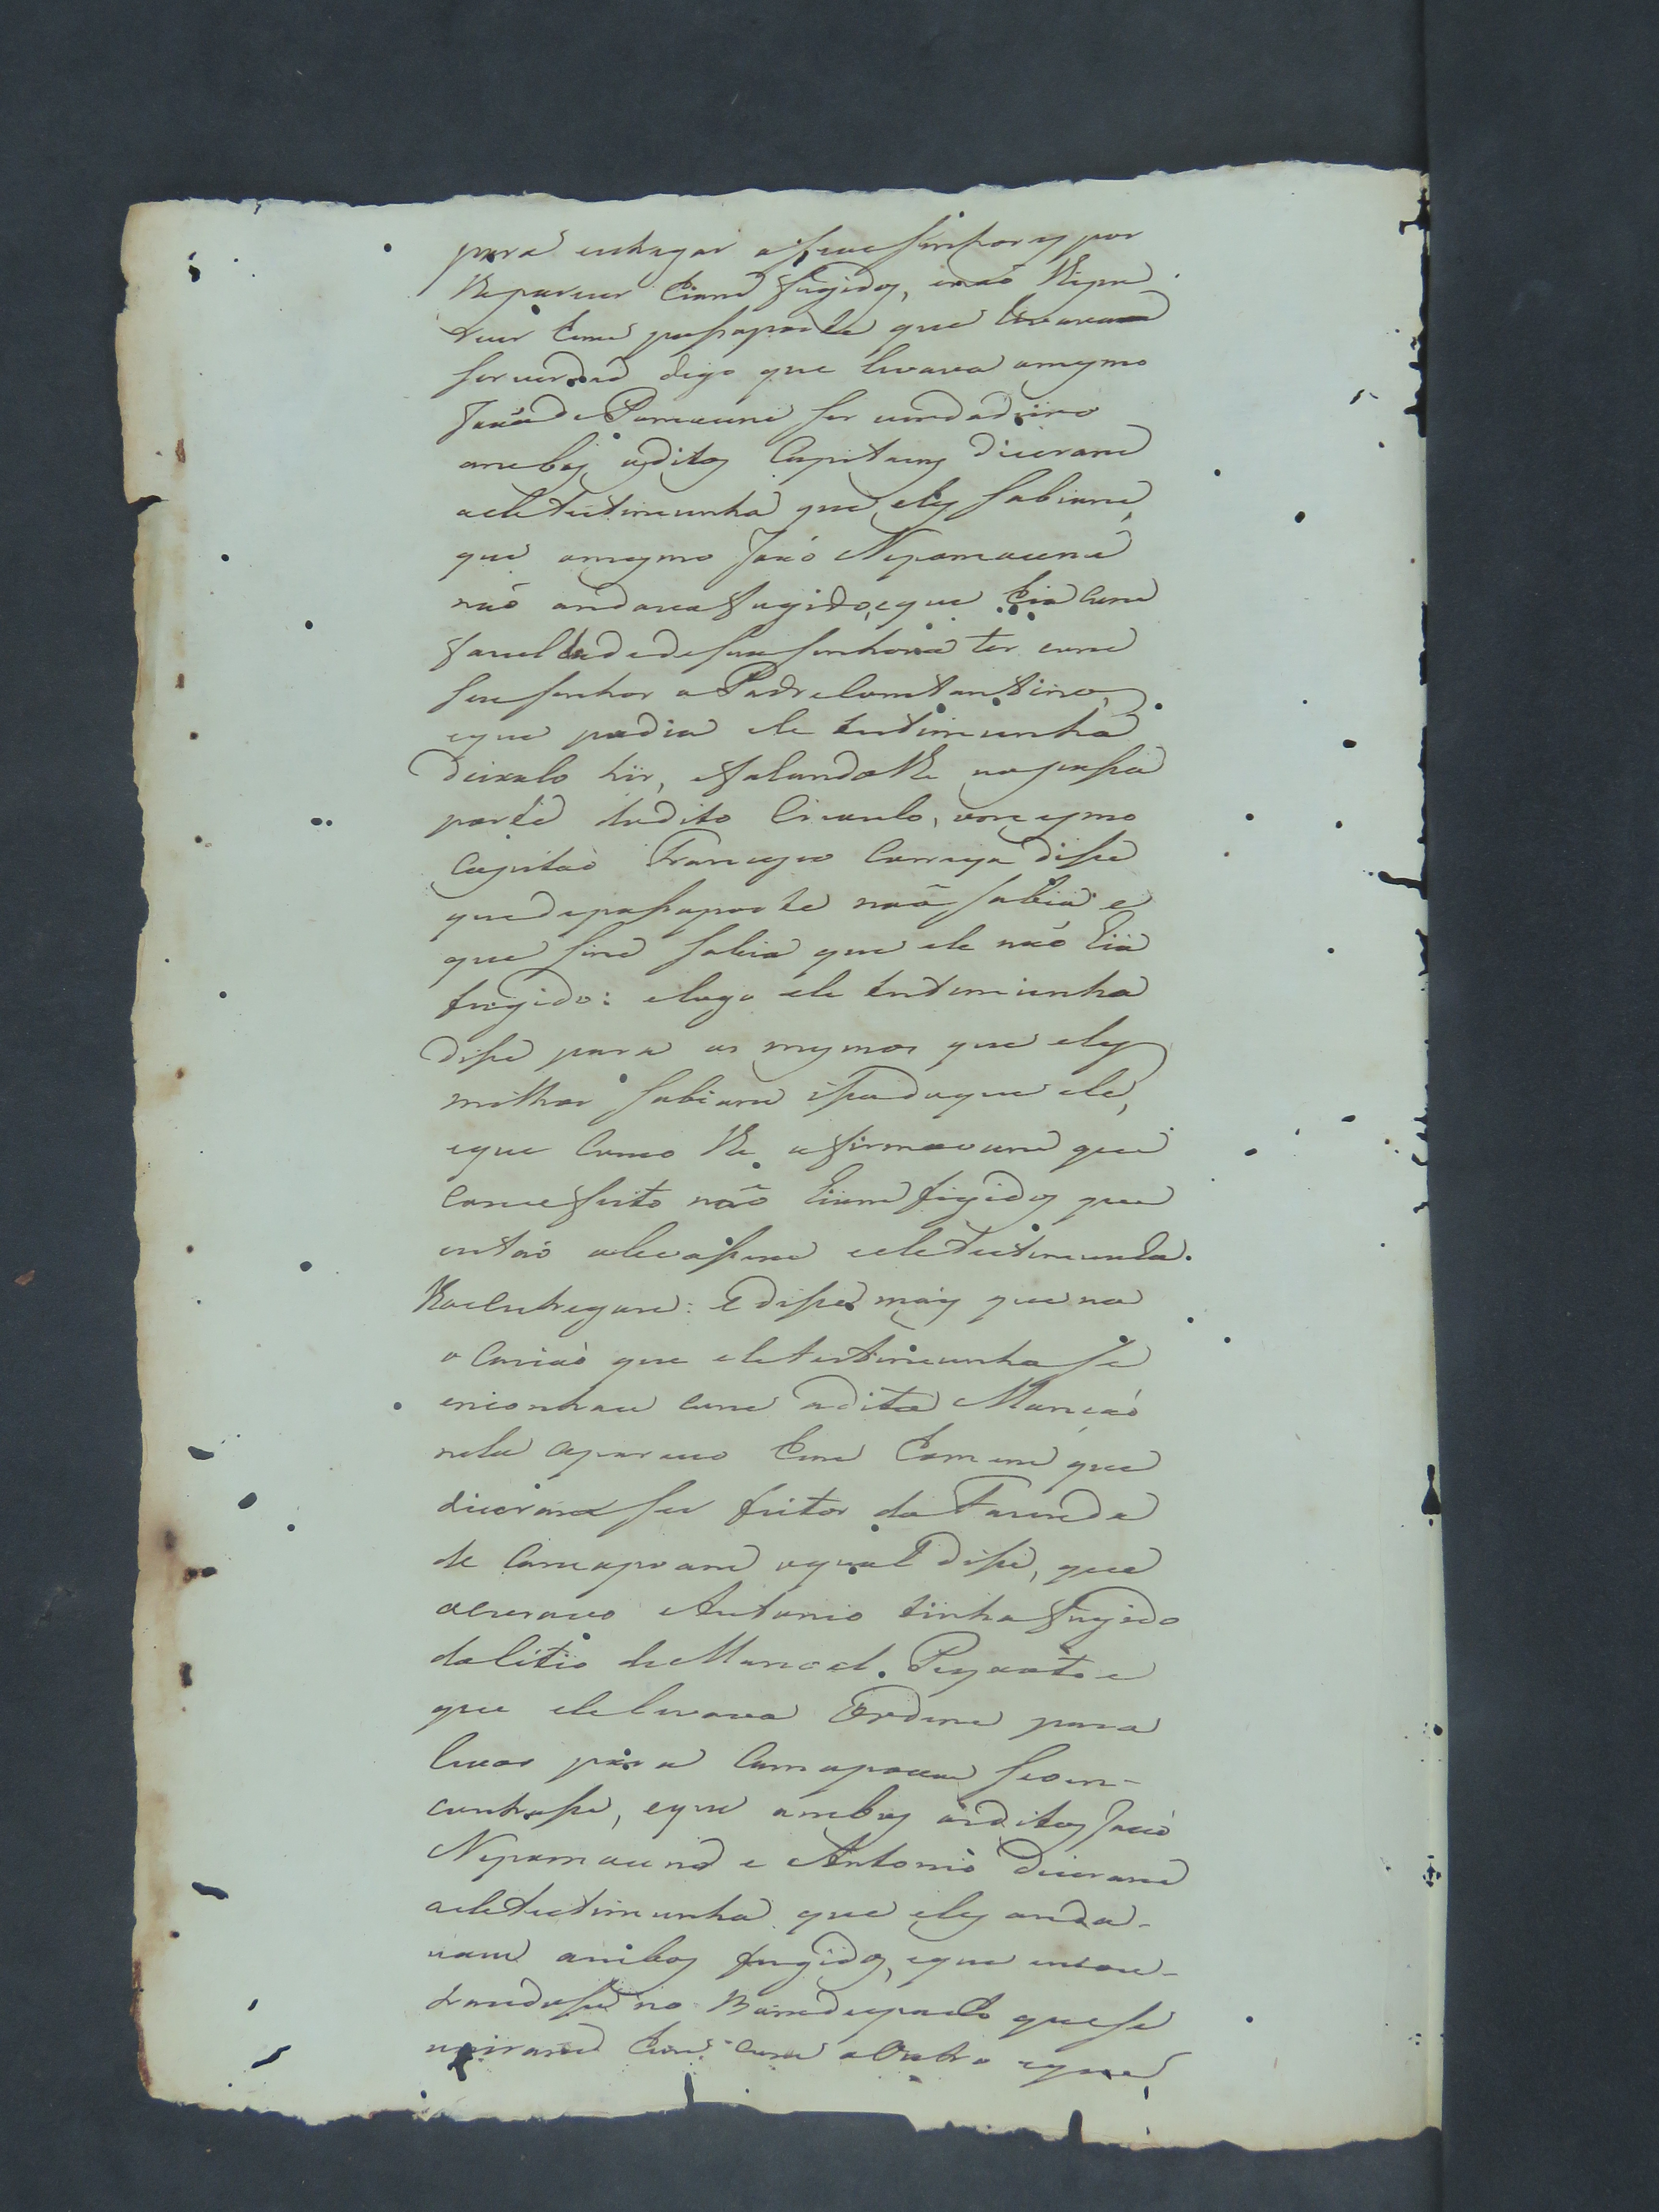 para entregar aSeuSenhores por
lhe parecer hiam fugidos, enaó lhepa
recer hum pasaporte que levavam
ser verdad digo que levava omesmo
Joaó de Pomuceno ser verdadeiro
ambos osditos Capitaens diceram
aeletestimunha que eles sabiam,
que omesmo Joaó Nepomuceno
naó andava fugido, eque hia com
faculdadedesuaSenhora ter com
seu senhor o PadreConstantino,
eque podia ele testimunha
deixalo hir, efalandolhe nopasa
porte do dito Crioulo, omesmo
Capitaó Francisco Correya dise
quedepasaporte naõ sabia e
que sim sabia que ele naó hia
fugido: elogo ele testimunha
dise para os mesmos que eles
milhor sabiam isso doque ele,
eque como lhe afirmavam que
comefeito naõ hiam fugidos que
entaó olevasem eeletestimunha
lhoentregara: E dise mais que na
ocaziaó que eletestimunha se
encontrou com odito Mançaó
nela apareceo hum homem que
diceram ser feitor da Fazenda
de Camapoam oqual dise, que
oescravo Antonio tinha fugido
dositio de Manoel Peyxoto e
que elelevava Ordem para
levar para Camapoam seoen-
contrase, eque ambos osditos Joaó
Nepomuceno e Antonio diceram
aeletestimunha que eles anda-
vam ambos fugidos, eque encon-
trandose no Barredespacho quese
uniram hum com oOutro eque